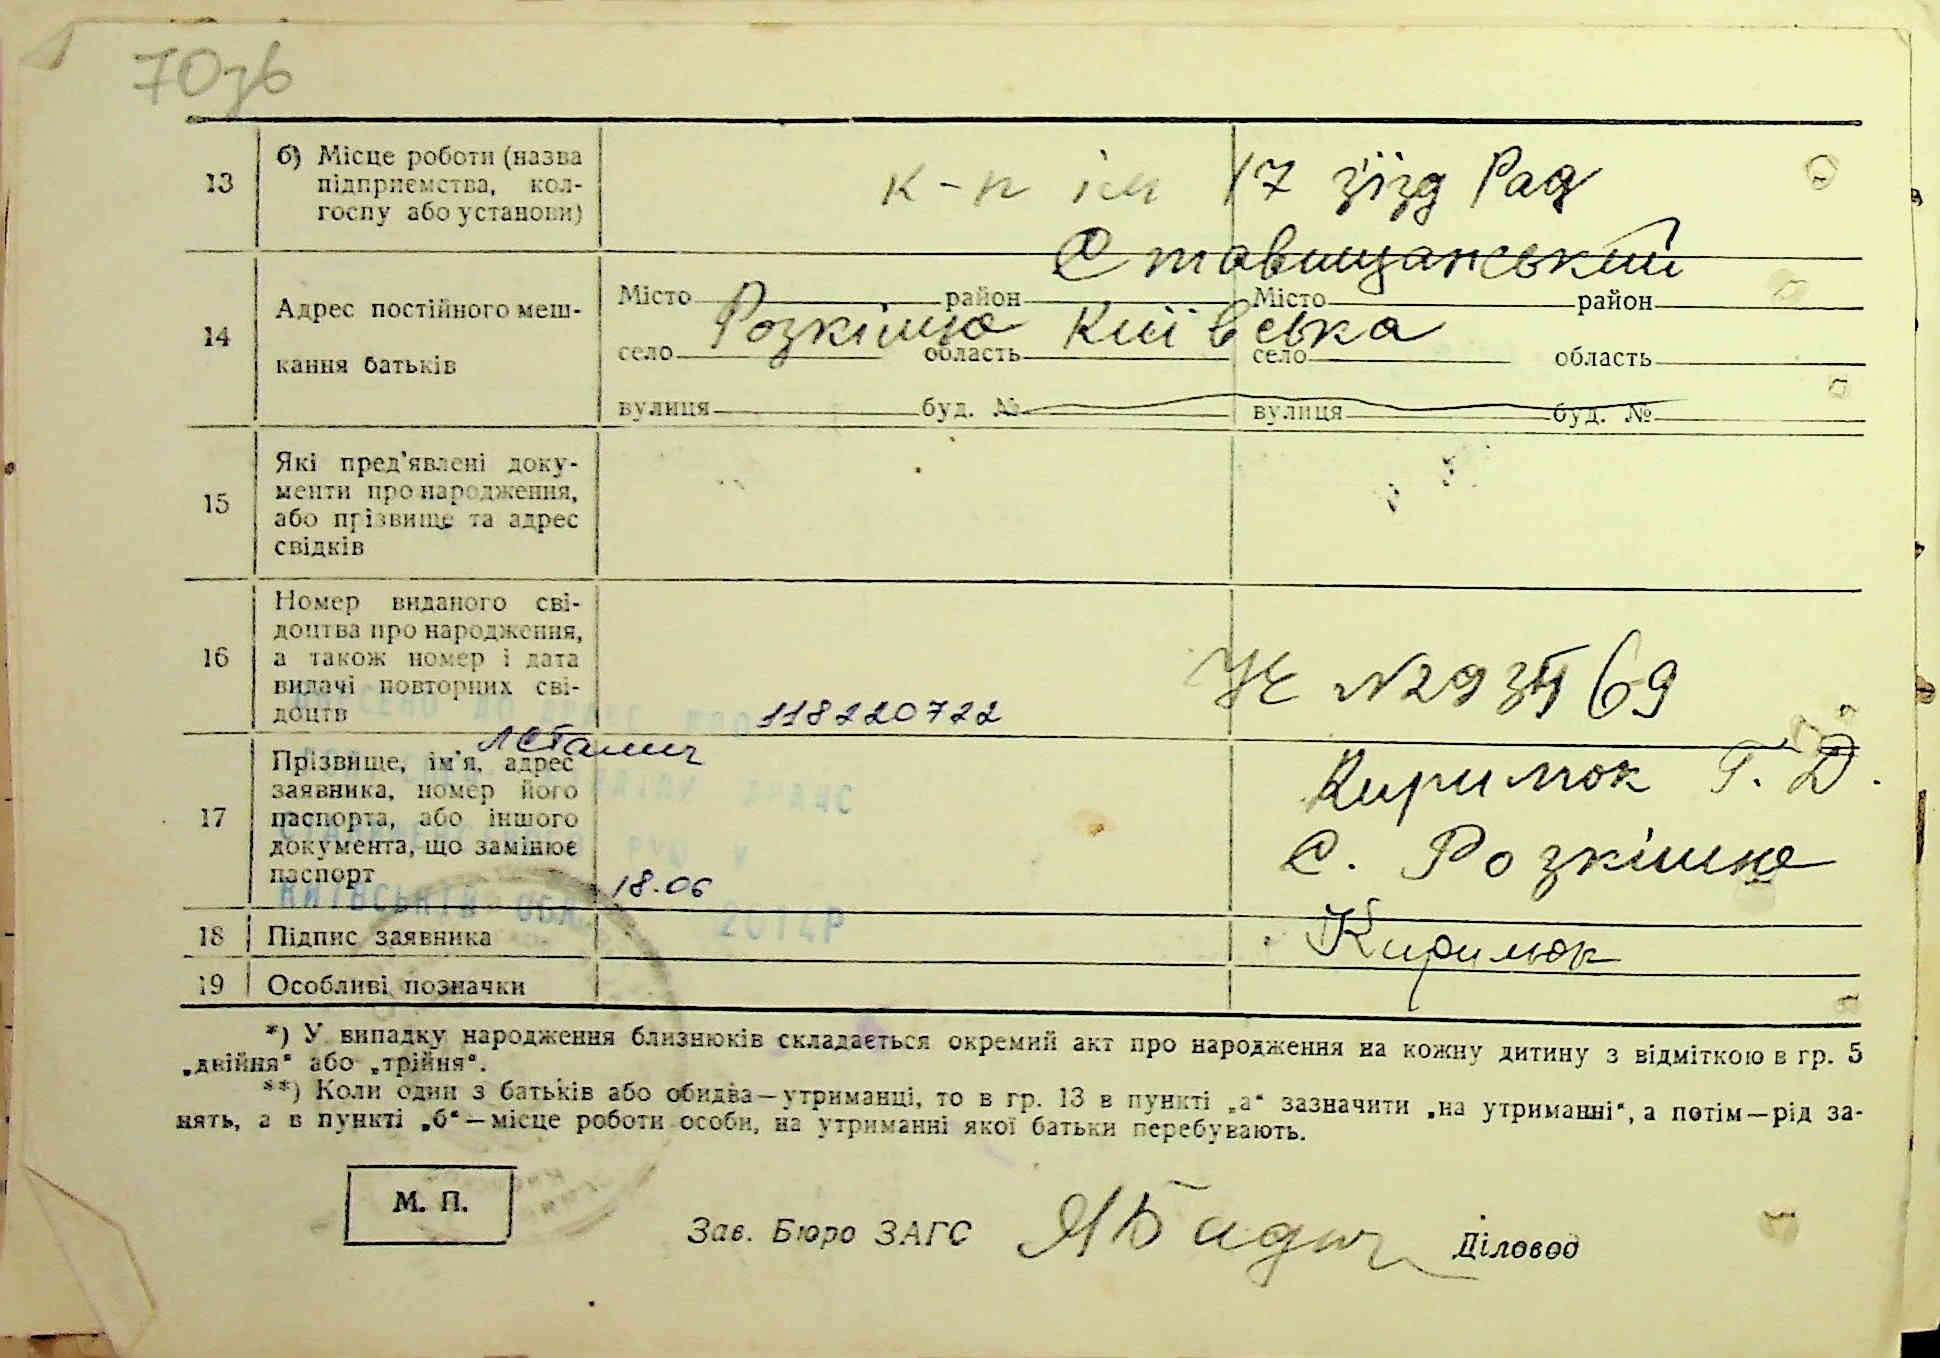 70зв
13
б) Місце роботи (назва
підприємства, кол-
госпу або установи)
к-п ім 17 з'їзд Рад
Ставищанський
14
Адрес постійного меш-
кання батьків
Місто район Місто район
Розкішна Київська
село область село область
вулиця буд. № вулиця буд. №
15
Які пред'явлені доку-
менти про народження,
або прізвище та адрес
свідків
16
Номер виданого сві-
доцтва про народження,
а також номер і дата
видачі повторних сві-
доцтв
118220722
17
Прізвище, ім'я, адрес
заявника, номер його
паспорта, або іншого
документа, що замінює
паспорт
Кирилюк Г. Д.
с. Розкішна
18.06
КИЇВСЬКІЙ ОБЛ. 2014Р
18
Підпис заявника
Кирилюк
19
Особливі позначки
*) У випадку народження близнюків складається окремий акт про народження на кожну дитину з відміткою в гр. 5
„двійня“ або „трійня“.
**) Коли один з батьків або обидва—утриманці, то в гр. 13 в пункті „а“ зазначити „на утриманні“, а потім—рід за-
нять, а в пункті „б“—місце роботи особи, на утриманні якої батьки перебувають.
М. П.
Зав. Бюро ЗАГС
Діловод